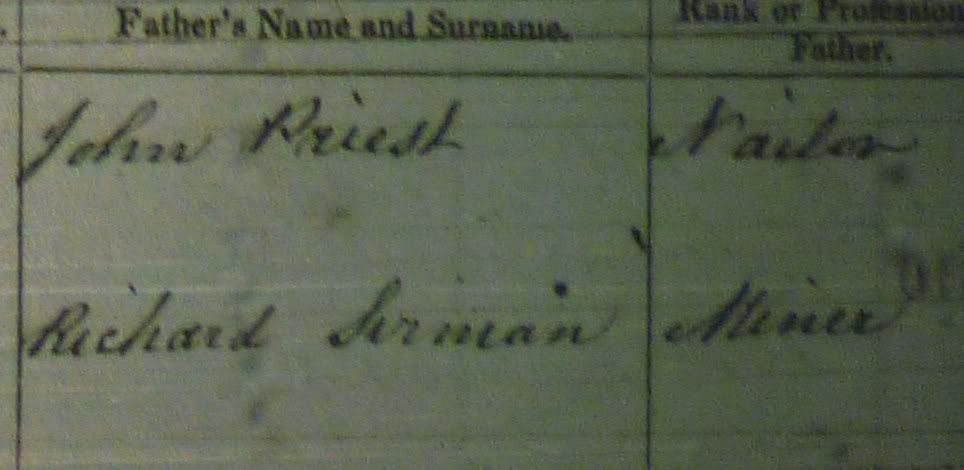 Father's Name and Surname. Rank or Profession
Father.
John Priest Nailor
Richard Sirman Miner